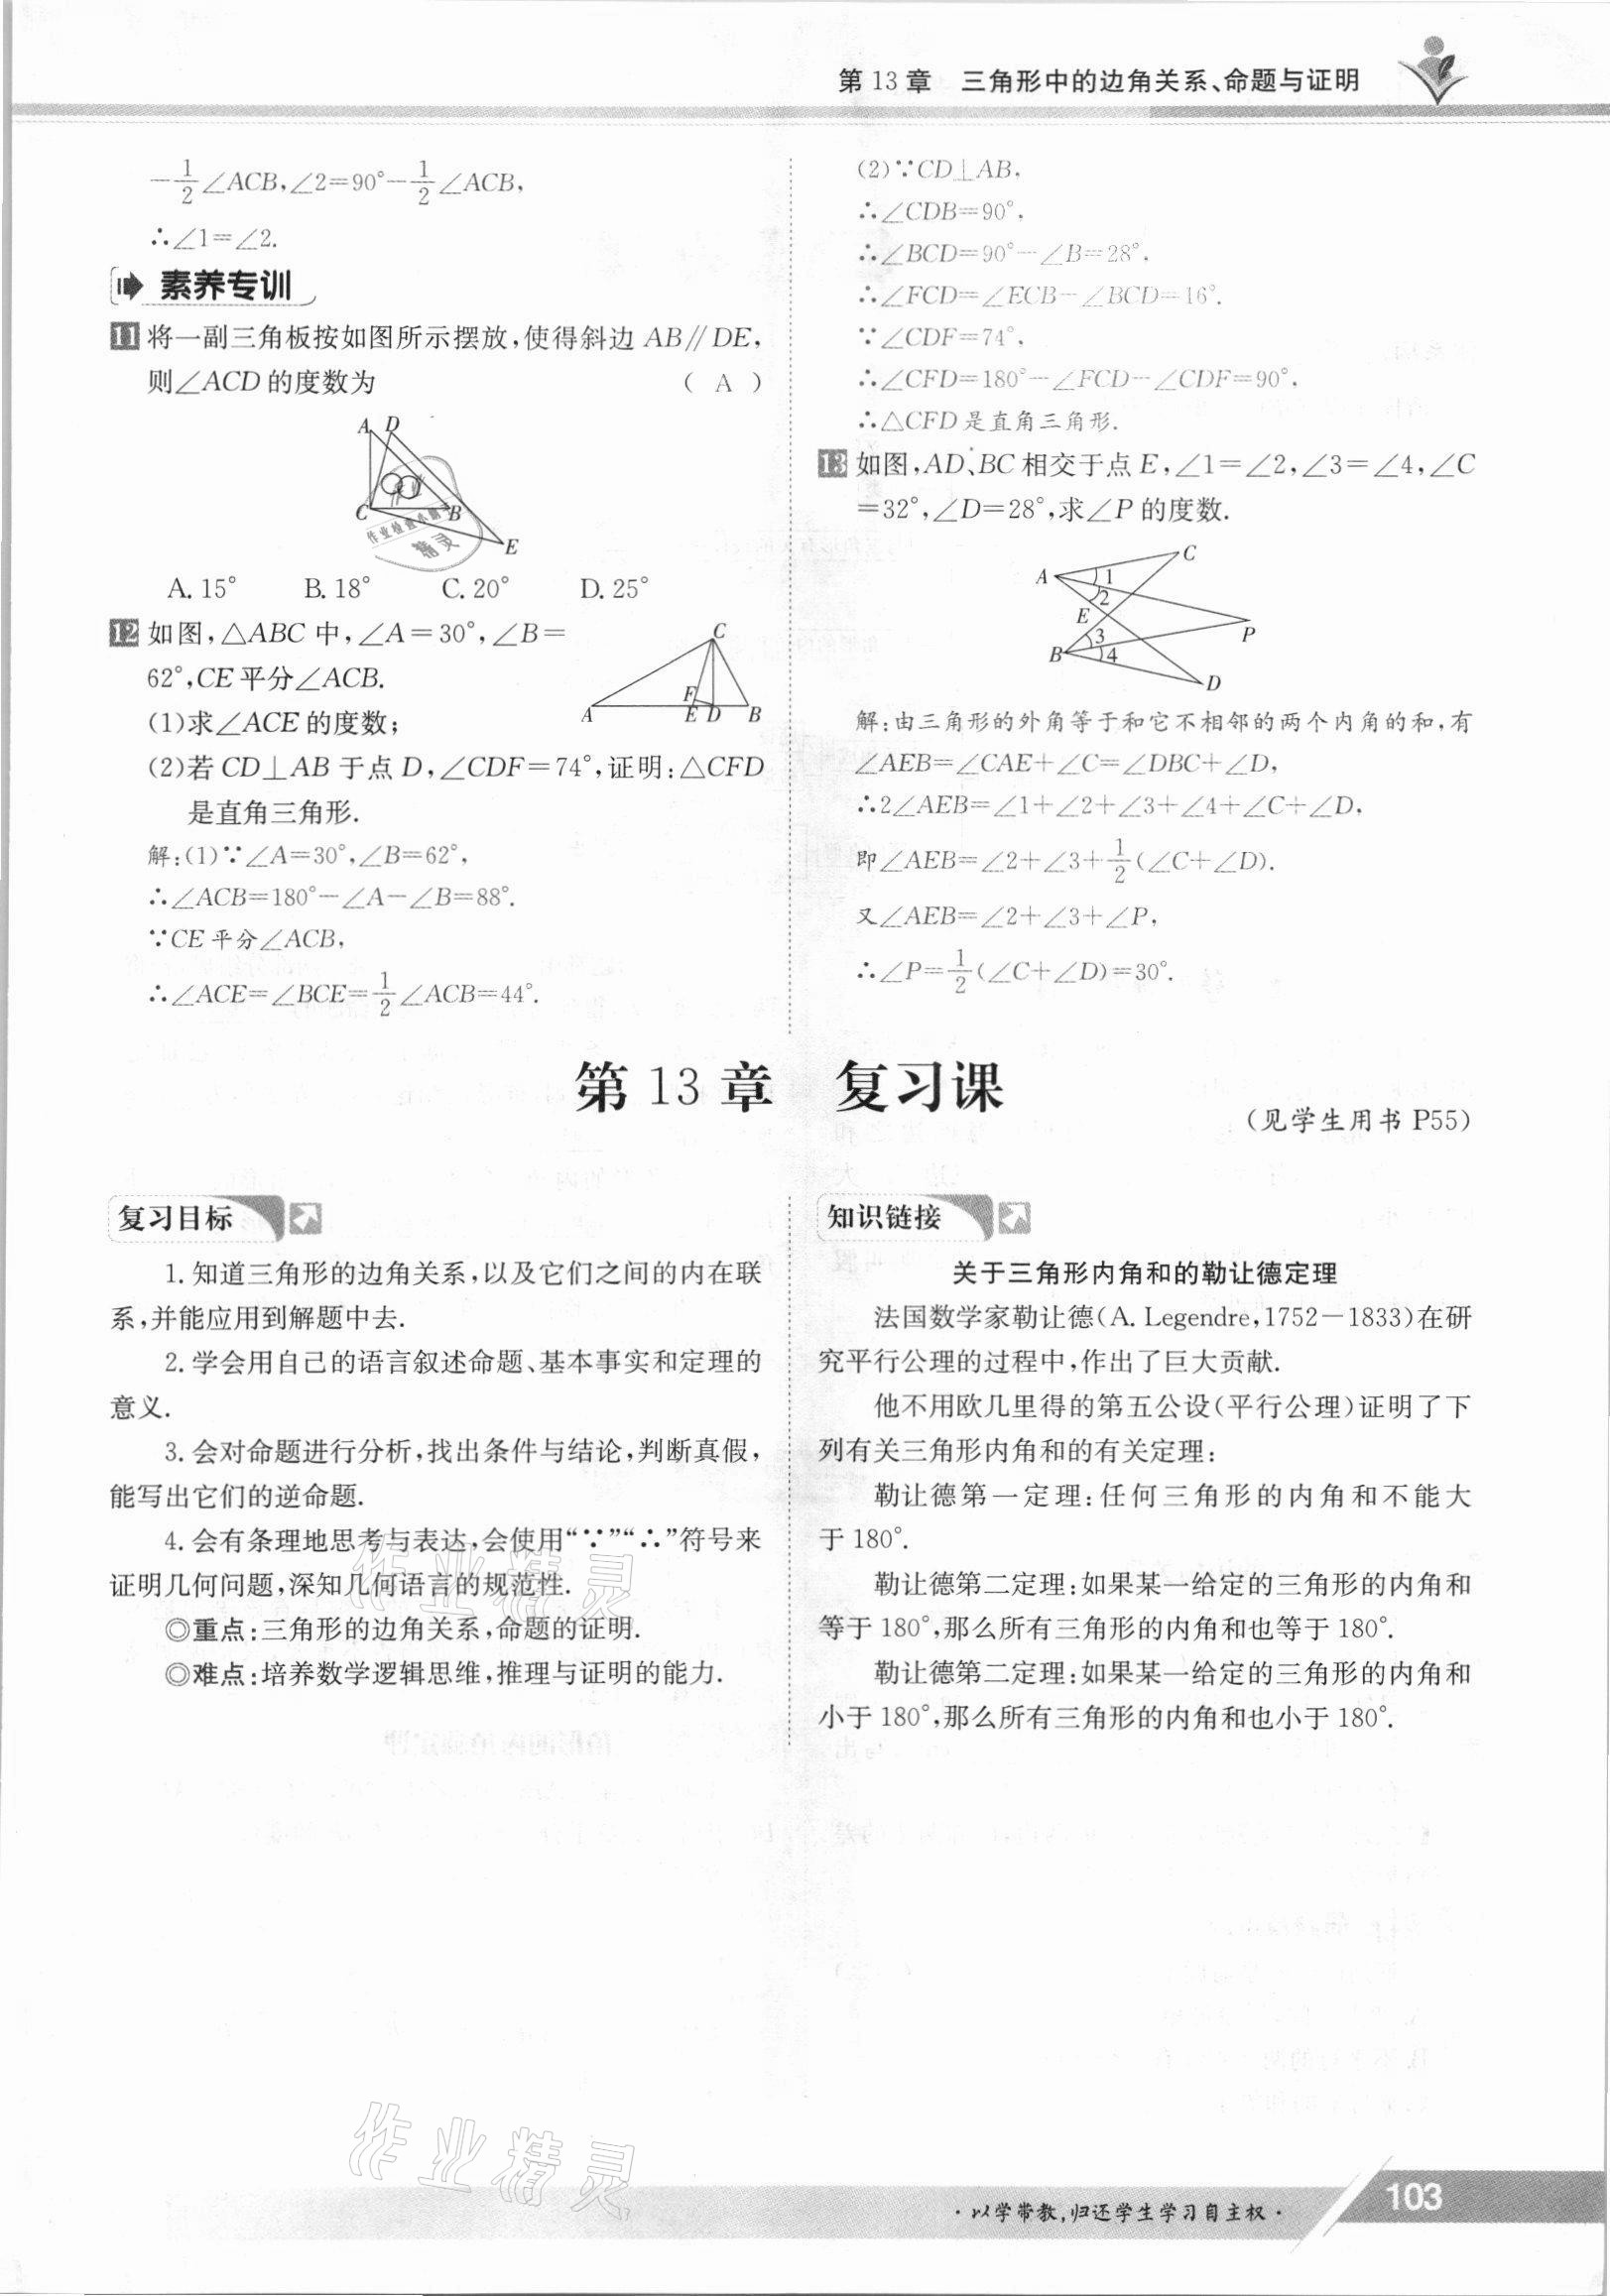 第 13 章　三角形中的边角关系、命题与证明
－1/2∠ACB,∠2＝90°－1/2∠ACB,
∴∠1＝∠2.
素养专训
11 将一副三角板按如图所示摆放,使得斜边 AB∥DE,
则∠ACD 的度数为　（ A ）
A D
C B
E
A. 15°　B. 18°　C. 20°　D. 25°
12 如图,△ABC 中,∠A＝30°,∠B＝
62°,CE 平分∠ACB.
(1)求∠ACE 的度数;
(2)若 CD⊥AB 于点 D,∠CDF＝74°,证明:△CFD
是直角三角形.
C
F
A E D B
解:(1)∵∠A＝30°,∠B＝62°,
∴∠ACB＝180°－∠A－∠B＝88°.
∵CE 平分∠ACB,
∴∠ACE＝∠BCE＝1/2∠ACB＝44°.
(2)∵CD⊥AB,
∴∠CDB＝90°.
∴∠BCD＝90°－∠B＝28°.
∴∠FCD＝∠ECB－∠BCD＝16°.
∵∠CDF＝74°,
∴∠CFD＝180°－∠FCD－∠CDF＝90°.
∴△CFD 是直角三角形.
13 如图,AD、BC 相交于点 E,∠1＝∠2,∠3＝∠4,∠C
＝32°,∠D＝28°,求∠P 的度数.
C
A 1
2
E
P
3
B 4
D
解:由三角形的外角等于和它不相邻的两个内角的和,有
∠AEB＝∠CAE＋∠C＝∠DBC＋∠D,
∴2∠AEB＝∠1＋∠2＋∠3＋∠4＋∠C＋∠D,
即∠AEB＝∠2＋∠3＋1/2(∠C＋∠D).
又∠AEB＝∠2＋∠3＋∠P,
∴∠P＝1/2(∠C＋∠D)＝30°.
第 13 章　复习课
(见学生用书 P55)
复习目标
1. 知道三角形的边角关系,以及它们之间的内在联
系,并能应用到解题中去.
2. 学会用自己的语言叙述命题、基本事实和定理的
意义.
3. 会对命题进行分析,找出条件与结论,判断真假,
能写出它们的逆命题.
4. 会有条理地思考与表达,会使用“∵”“∴”符号来
证明几何问题,深知几何语言的规范性.
◎重点:三角形的边角关系,命题的证明.
◎难点:培养数学逻辑思维,推理与证明的能力.
知识链接
关于三角形内角和的勒让德定理
法国数学家勒让德(A. Legendre,1752－1833)在研
究平行公理的过程中,作出了巨大贡献.
他不用欧几里得的第五公设(平行公理)证明了下
列有关三角形内角和的有关定理:
勒让德第一定理:任何三角形的内角和不能大
于 180°.
勒让德第二定理:如果某一给定的三角形的内角和
等于 180°,那么所有三角形的内角和也等于 180°.
勒让德第二定理:如果某一给定的三角形的内角和
小于 180°,那么所有三角形的内角和也小于 180°.
作业精灵
作业精灵
·以学带教,归还学生学习自主权·
103